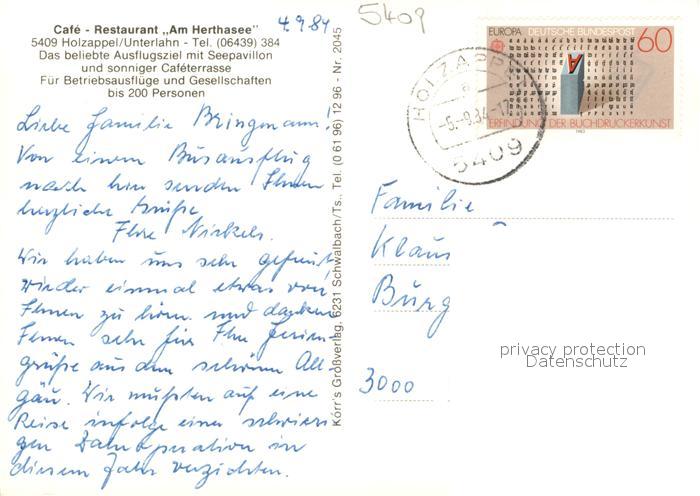 Café - Restaurant „Am Herthasee"
5409 Holzappel/Unterlahn - Tel. (06439) 384
Das beliebte Ausflugsziel mit Seepavillon
und sonniger Caféterrasse
Für Betriebsausflüge und Gesellschaften
bis 200 Personen
4.9.84
5409
Liebe Familie Bringmann!
Von einem Busausflug
nach hier senden Ihnen
herzliche Grüße
Ihre Nickels.
Wir haben uns sehr gefreut
wieder einmal etwas von
Ihnen zu hören und danken
Ihnen sehr für Ihre Ferien-
grüße aus dem schönen All-
gäu. Wir mußten auf eine
Reise infolge einer schwieri-
gen Operation in
diesem Jahr verzichten.
Körr's Großverlag, 6231 Schwalbach/Ts., Tel. (0 61 96) 12 96 - Nr. 2045
HOLZAPPEL
-5.-9.84-
5409
EUROPA DEUTSCHE BUNDESPOST
60
A
ERFINDUNG DER BUCHDRUCKERKUNST
1983
Familie
Klaus
Burg
3000
privacy protection
Datenschutz